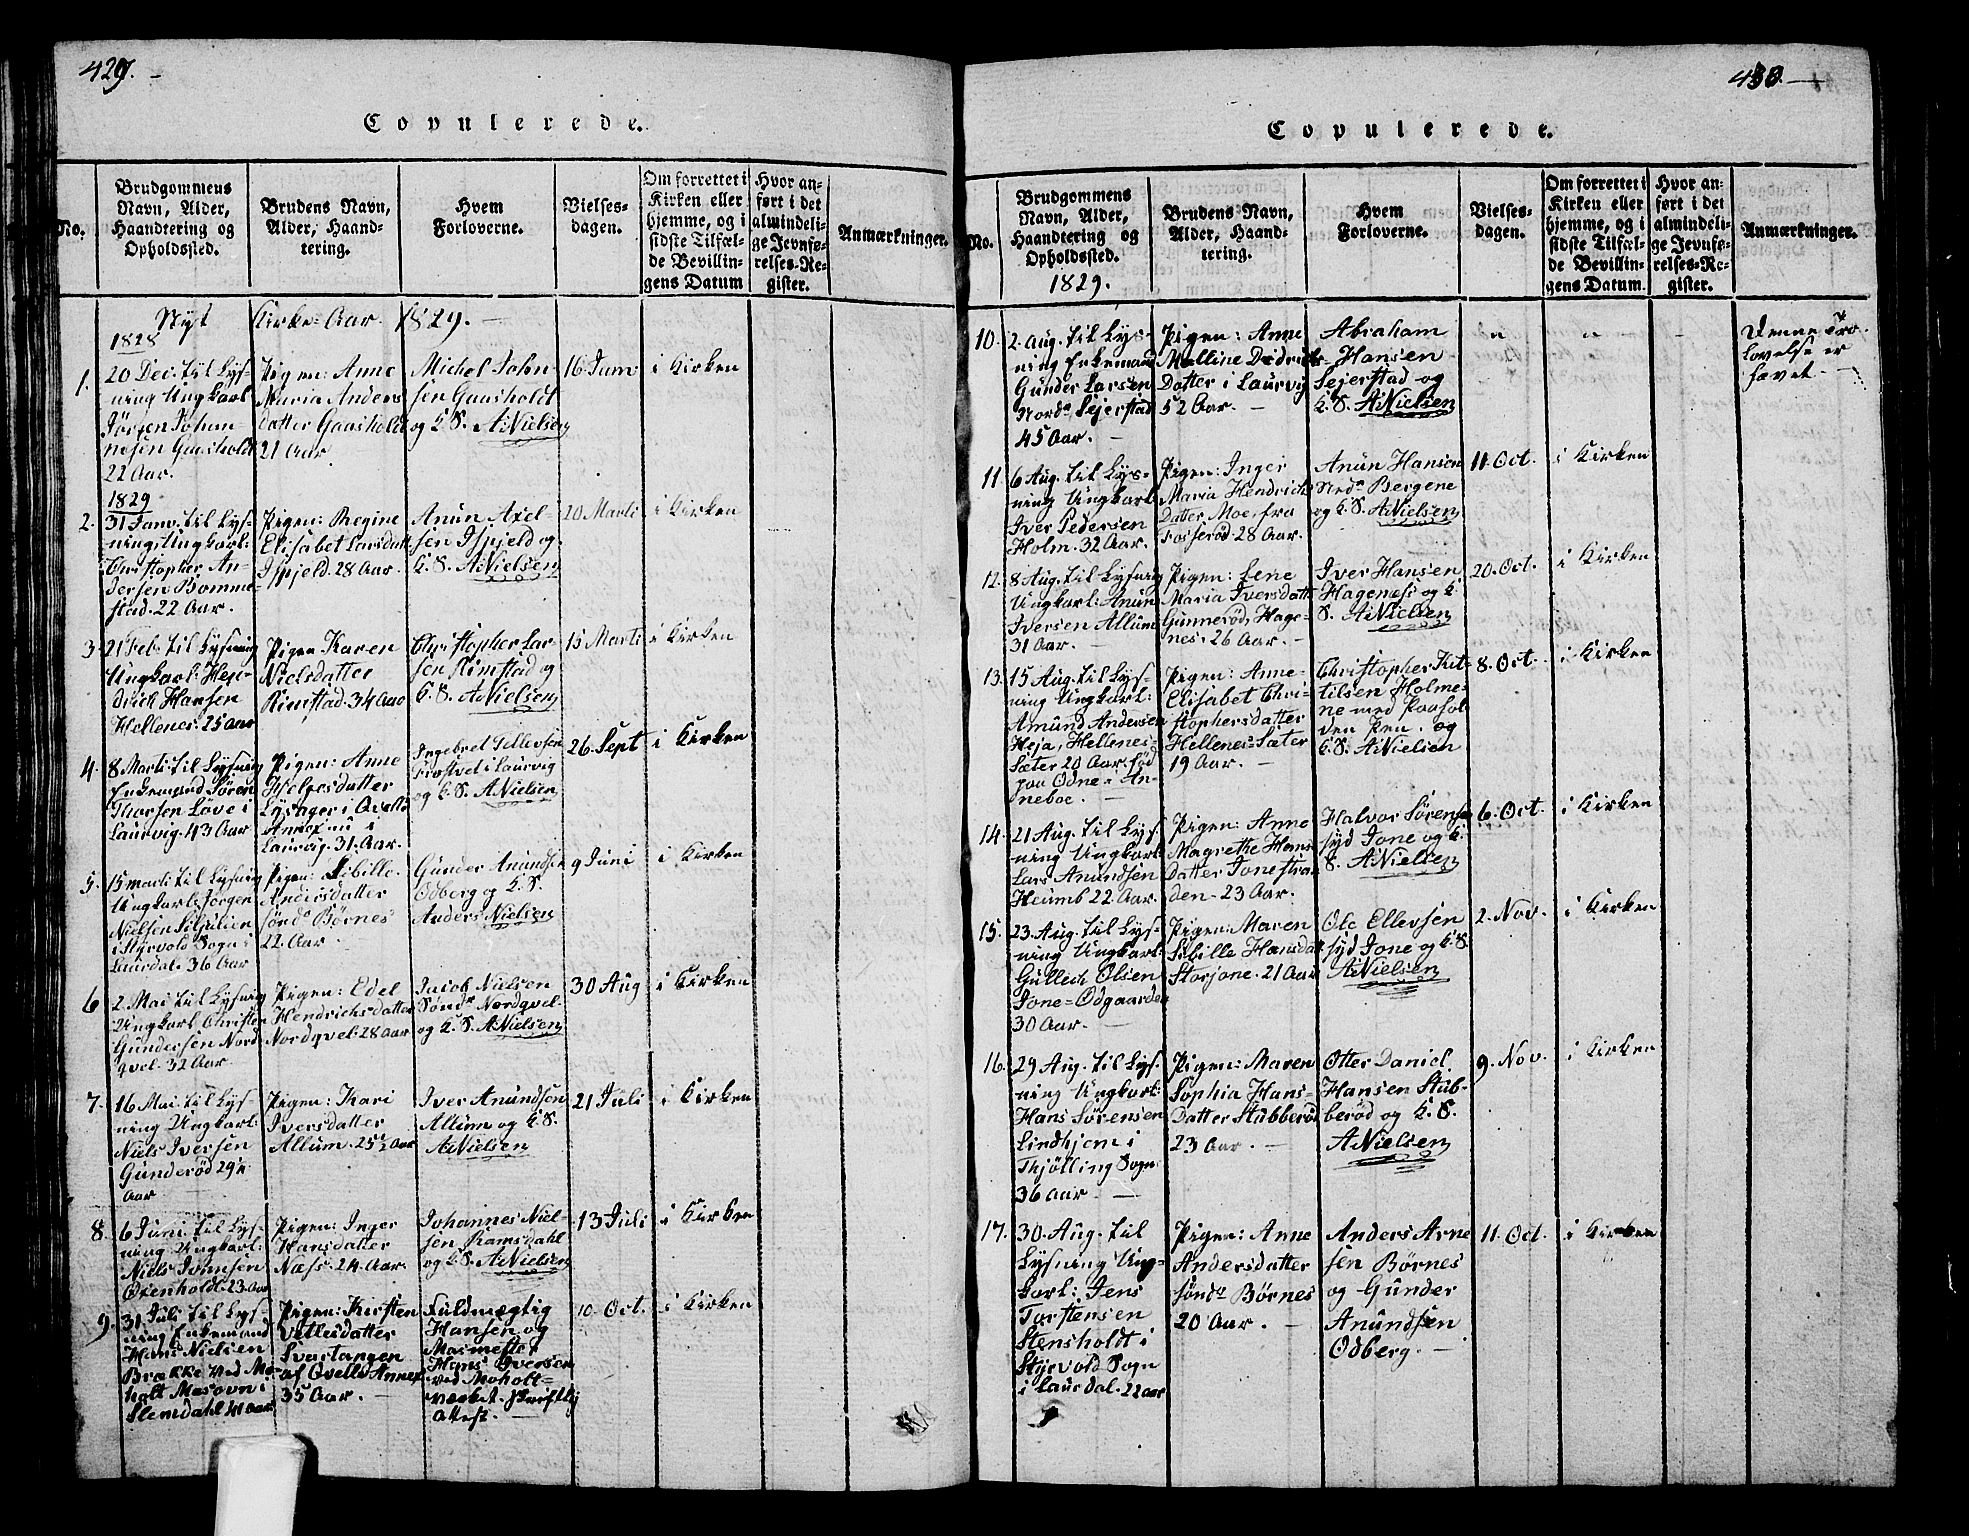 429.
Copulerede.
No.
Brudgommens
Navn, Alder,
Haandtering og
Opholdssted.
Brudens Navn,
Alder, Haand-
tering.
Hvem
Forloverne.
Vielses-
dagen.
Om forrettet i
Kirken eller
hjemme, og i
sidste Tilfæl-
de Bevillin-
gens Datum
Hvor an-
ført i det
almindeli-
ge Jevnfø-
relses-Re-
gister.
Anmærkninger.
Nyt Kirke-Aar 1829.
1828
1.
20 Dec. til Lys-
ning Ungkarl
Jørgen Johan-
nesen Gaasholt
22 Aar.
Pigen: Anne
Maria Anders
datter Gaasholt
21 Aar
Michel John
sen Gaasholdt
og K.S. ANielsen
16 Juni
i Kirken
1829
2.
31 Janv. til Lys-
ning: Ungkarl:
Christopher An-
dersen Bomme-
stad. 22 Aar.
Pigen: Regine
Elisabet Larsdatt
Ispjeld. 28 Aar.
Anún Axel-
sen Ispjeld og
K.S. ANielsen
20 Marti
i Kirken
3.
21 Feb. til Lysning
Ungkarl: Hen-
drich Hansen
Hellenes. 25 Aar
Pigen Karen
Nielsdatter
Rimstad. 34 Aar
Christopher Lar-
sen Rimstad og
K.S. ANielsen
15 Marti
i Kirken
4.
8 Marti til Lysning
Enkemand Søren
Thorsen Løve i
Laurvig. 43 Aar
Pigen: Anne
Helgesdatter
Lysager i Qvelle
Annex nu i
Laurvig. 31. Aar.
Ingebret Tellevsen
Frostvet i Laurvig
og K.S. ANielsen
26. Sept
i Kirken
5.
15 Marti til Lysning
Ungkarl: Jørgen
Nielsen
i Styrvold Sogn i
Laurdal. 36 Aar
Pigen: Sibille
Andersdatter
søndr Børnes
22. Aar
Gunder Anundsen
Odberg og K.S.
Anders Nielsen
9 Juni
i Kirken
6
2. Mai til Lysning
Ungkarl Christen
Gundersen Nord
qvel. 32 Aar.
Pigen: Edel
Hendrichsdatter
Nordqvel. 28 Aar
Jacob Nielsen
Søndr Nordqvel
og K.S. ANielsen
30 Aug
i Kirken
7.
16 Mai til Lys-
ning Ungkarl:
Niels Iversen
Gúnderød 29½
Aar
Pigen: Kari
Iversdatter
Allum. 25½ Aar
Iver Anúndsen
Allúm og K.S.
ANielsen
21 Juli
i Kirken
8.
6 Juni til Lys-
ning Ungkarl:
Niels Ivarsen
Oxenholt. 23 Aar
Pigen: Inger
Hansdatter
Næss. 24 Aar.
Johannes Niel-
sen Ramsdahl
og K.S. ANielsen
13 Juli
i Kirken
9.
31 Juli til Lys-
ning Enkemand
Hans Nielsen
Brække ved Mo-
holt Masovn i
Slemdahl 41 Aar
Pigen: Kirsten
Vetlesdatter
Svartangen
af Qvelle Annex
35 Aar.
Fuldmægtig
Hansen og
Masmester
Hans Iversen
ved Moholt-
værket. skriftlig
Attest.
10 Oct.
i Kirken
430.
Copulerede.
No.
Brudgommens
Navn, Alder,
Haandtering og
Opholdssted.
1829.
Brudens Navn,
Alder, Haand-
tering.
Hvem
Forloverne.
Vielses-
dagen.
Om forrettet i
Kirken eller
hjemme, og i
sidste Tilfæl-
de Bevillin-
gens Datum.
Hvor an-
ført i det
almindeli-
ge Jevnfø-
relses-Re-
gister.
Anmærkninger.
10.
2. Aug. til Lys-
ning Enkemand
Gúnder Larsen
Nordr Sejerstad
45 Aar.
Pigen: Anne
Malline Didrichs
Datter i Laurvig
52 Aar.
Abraham
Hansen
Sejerstad og
K.S. ANielsen
Denne Tro-
lovelse er
hævet.
11
6 Aug. til Lys-
ning Ungkarl:
Iver Pedersen
Holm. 32 Aar.
Pigen: Inger
Maria Hendrichs
Datter Moe, fra
Fosserød. 28 Aar.
Anún Hansen
Nedr Bergene
og K.S. ANielsen
11. Oct.
i Kirken
12.
8 Aug. til Lysning
Ungkarl: Anún
Iversen Allum
31 Aar.
Pigen: Lene
Maria Iversdatt
Gunnerød, Hage-
nes. 26 Aar.
Iver Hansen
Hagenæs og K:
S. ANielsen
20. Oct.
i Kirken
13.
15 Aug. til Lys-
ning Ungkarl:
Amúnd Andersen
Heja, Hellenes-
Sæter 20 Aar. fød
paa Odne i An-
neboe.
Pigen: Anne
Elisabet Chri-
stophersdatter
Hellenes-Sæter
19 Aar.
Christopher Kit-
tilsen Holme-
ne med paahol
den Pen. og
K.S. ANielsen
8. Oct.
i Kirken
14.
21 Aug. til Lys-
ning Ungkarl
Lars Anúndsen
Heúmb 22 Aar.
Pigen: Anne
Magrethe Hans
Datter Jonestran
den. 23 Aar.
Halvor Sørensen
syd Jone og K:
S. ANielsen
6. Oct.
i Kirken
15.
23. Aug. til Lys-
ning Ungkarl:
Gúllech Olsen
Jone-Odgaarden
30 Aar.
Pigen: Maren
Sibille Hansdatt
Storjone. 21 Aar
Ole Ellevsen
syd Jone og K.S.
ANielsen
2. Nov.
i Kirken
16.
29 Aug. til Lys-
ning Ungkarl:
Hans Sørensen
Lindhjem i
Thjølling Sogn
36 Aar.
Pigen: Maren
Sophia Hans-
Datter Stubberød
23 Aar.
Otter Daniel
Hansen Stúb-
berød og K.S.
ANielsen
9. Nov.
i Kirken
17.
30. Aug. til
Lysning Ung-
karl: Jens
Torstensen
Stensholdt i
Styrvold Sogn
i Laurdal. 22 Aar
Pigen: Anne
Andersdatter
søndr Børnes
20 Aar.
Anders Arne
sen Børnes
og Gúnder
Anúndsen
Odberg.
11. Oct.
i Kirken